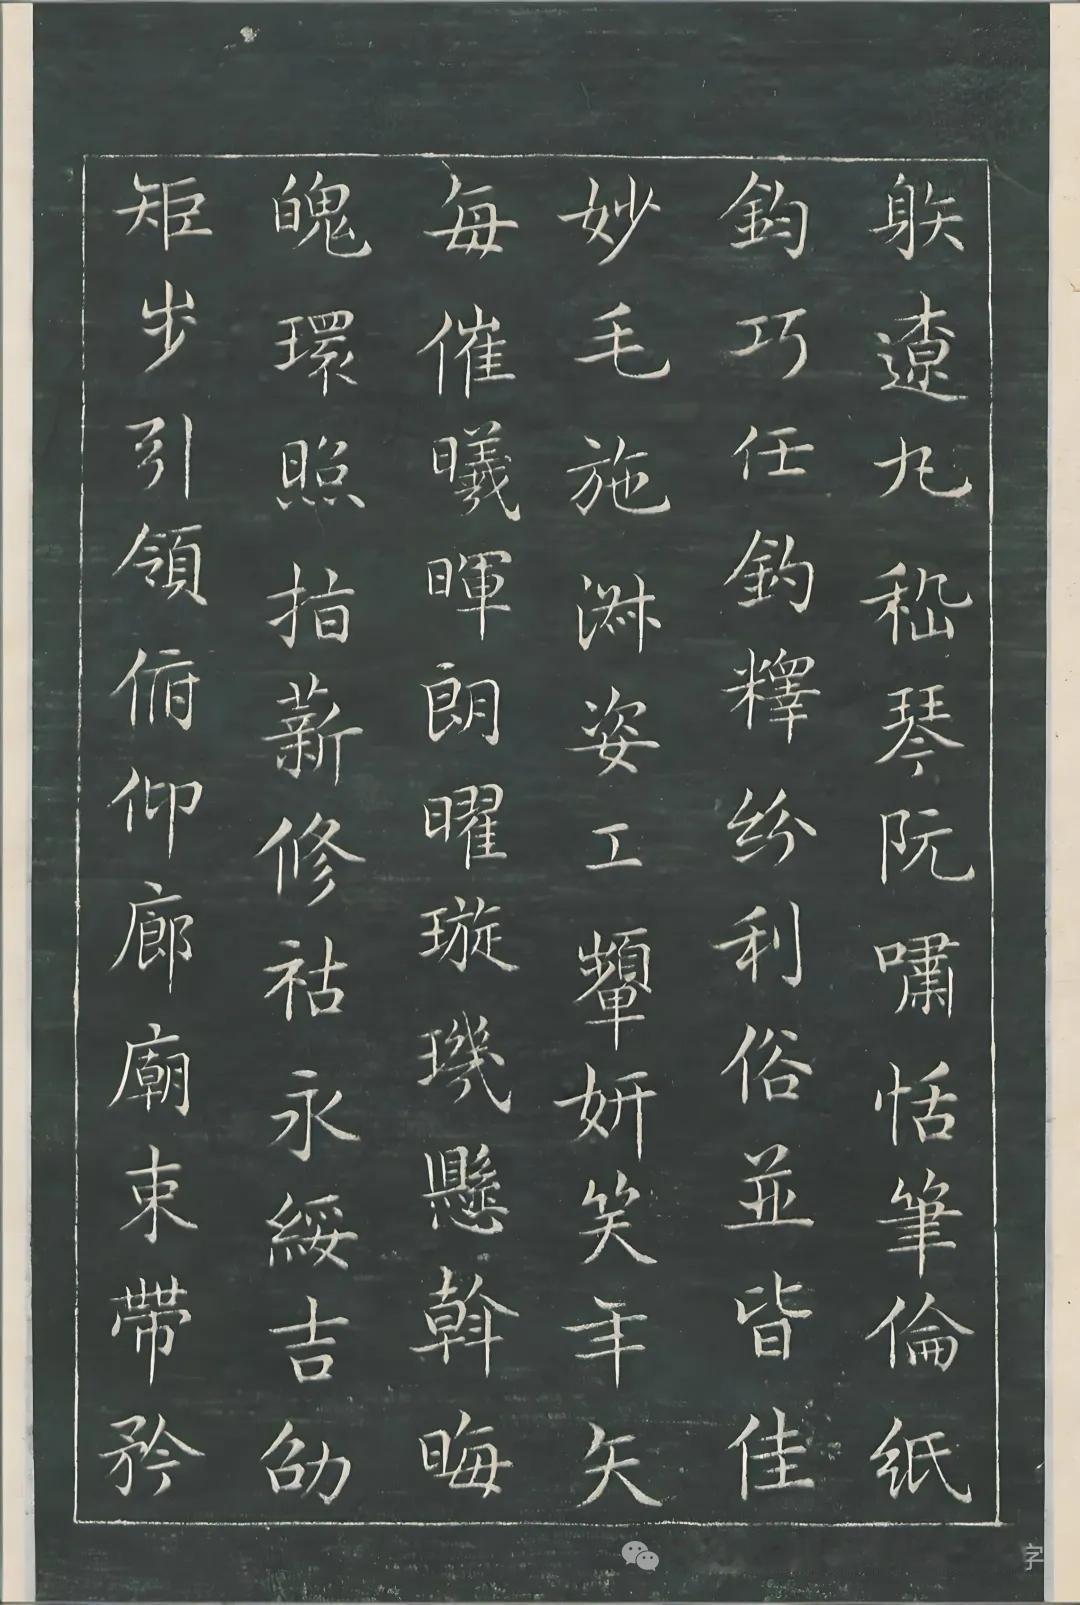 䠶遼丸嵇琴阮嘯恬筆倫紙
鈞巧任釣釋紛利俗並皆佳
妙毛施淑姿工顰妍笑年矢
每催曦暉朗曜璇璣懸斡晦
魄環照指薪修祜永綏吉劭
矩步引領俯仰廊廟束帶矜
字